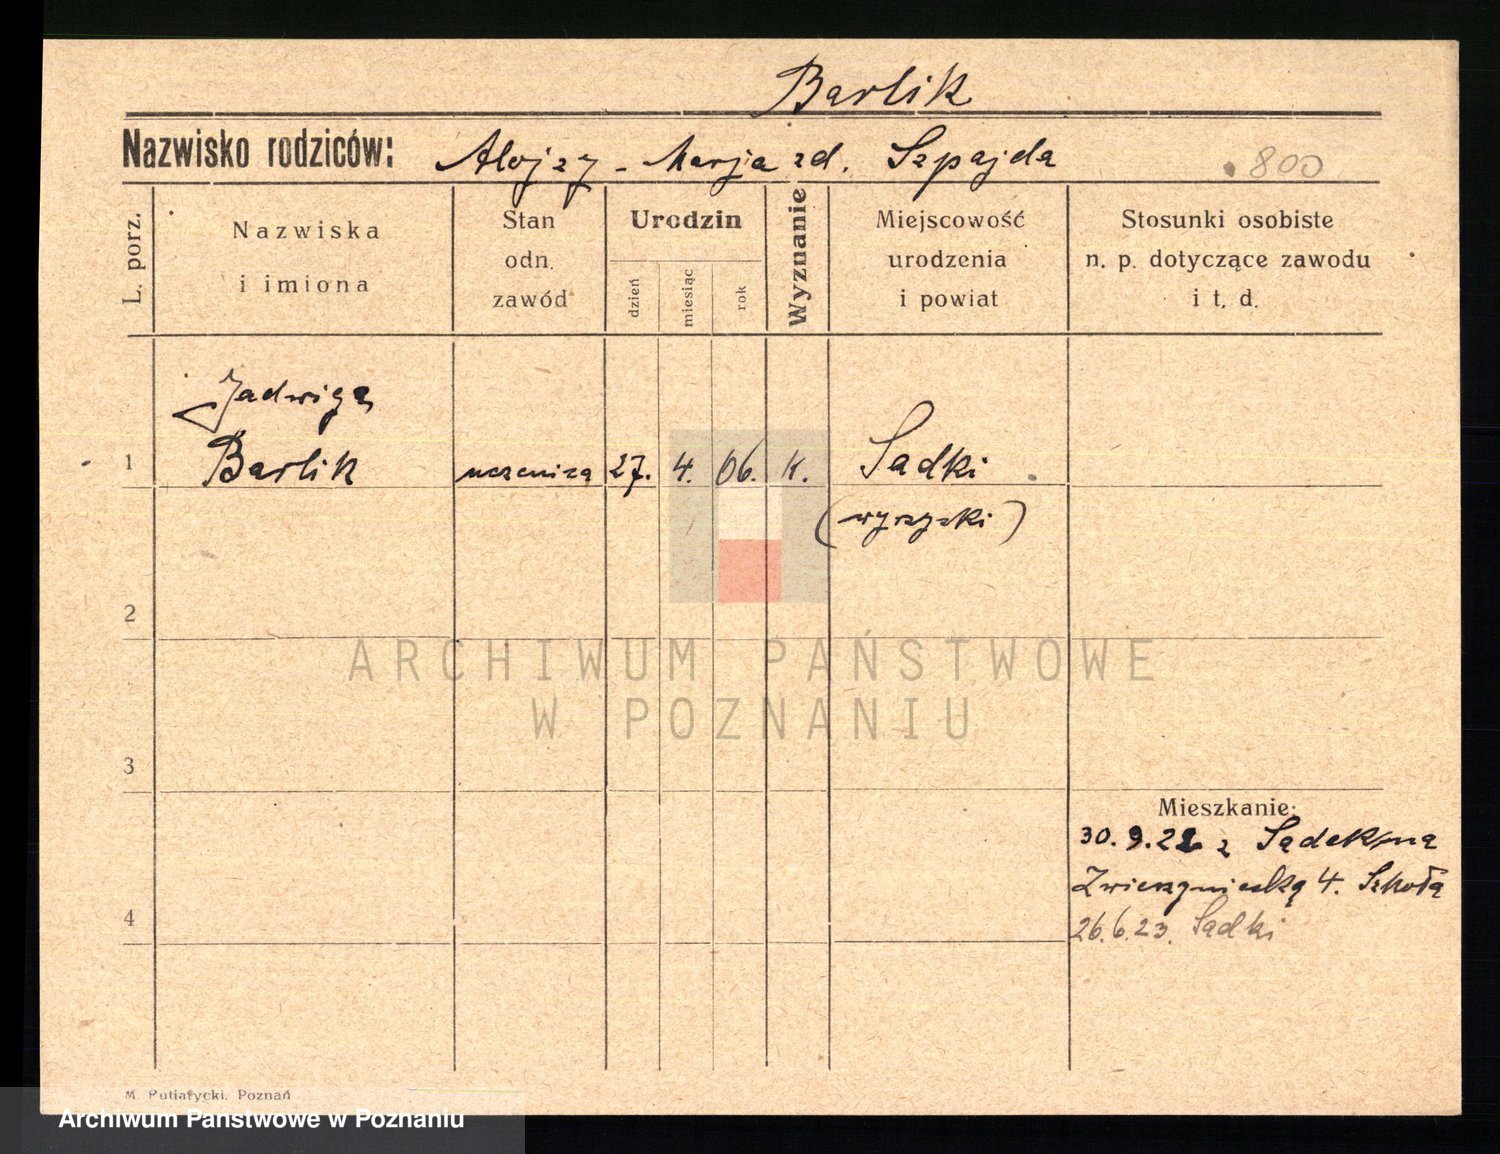 Barlik
Nazwisko rodziców: Alojzy - Marja zd. Szpajda
800
L. porz.
Nazwiska
i imiona
Stan
odn.
zawód
Urodzin
dzień
miesiąc
rok
Wyznanie
Miejscowość
urodzenia
i powiat
Stosunki osobiste
n. p. dotyczące zawodu
i t. d.
Jadwiga
1 Barlik uczenica 27. 4. 06. k. Sadki
(wyrzyski)
2
ARCHIWUM PAŃSTWOWE
W POZNANIU
3
Mieszkanie:
30.9.22 z Sadek/na
4. Szkołą
4
26.6.23. Sadki
M. Putiatycki. Poznań
Archiwum Państwowe w Poznaniu